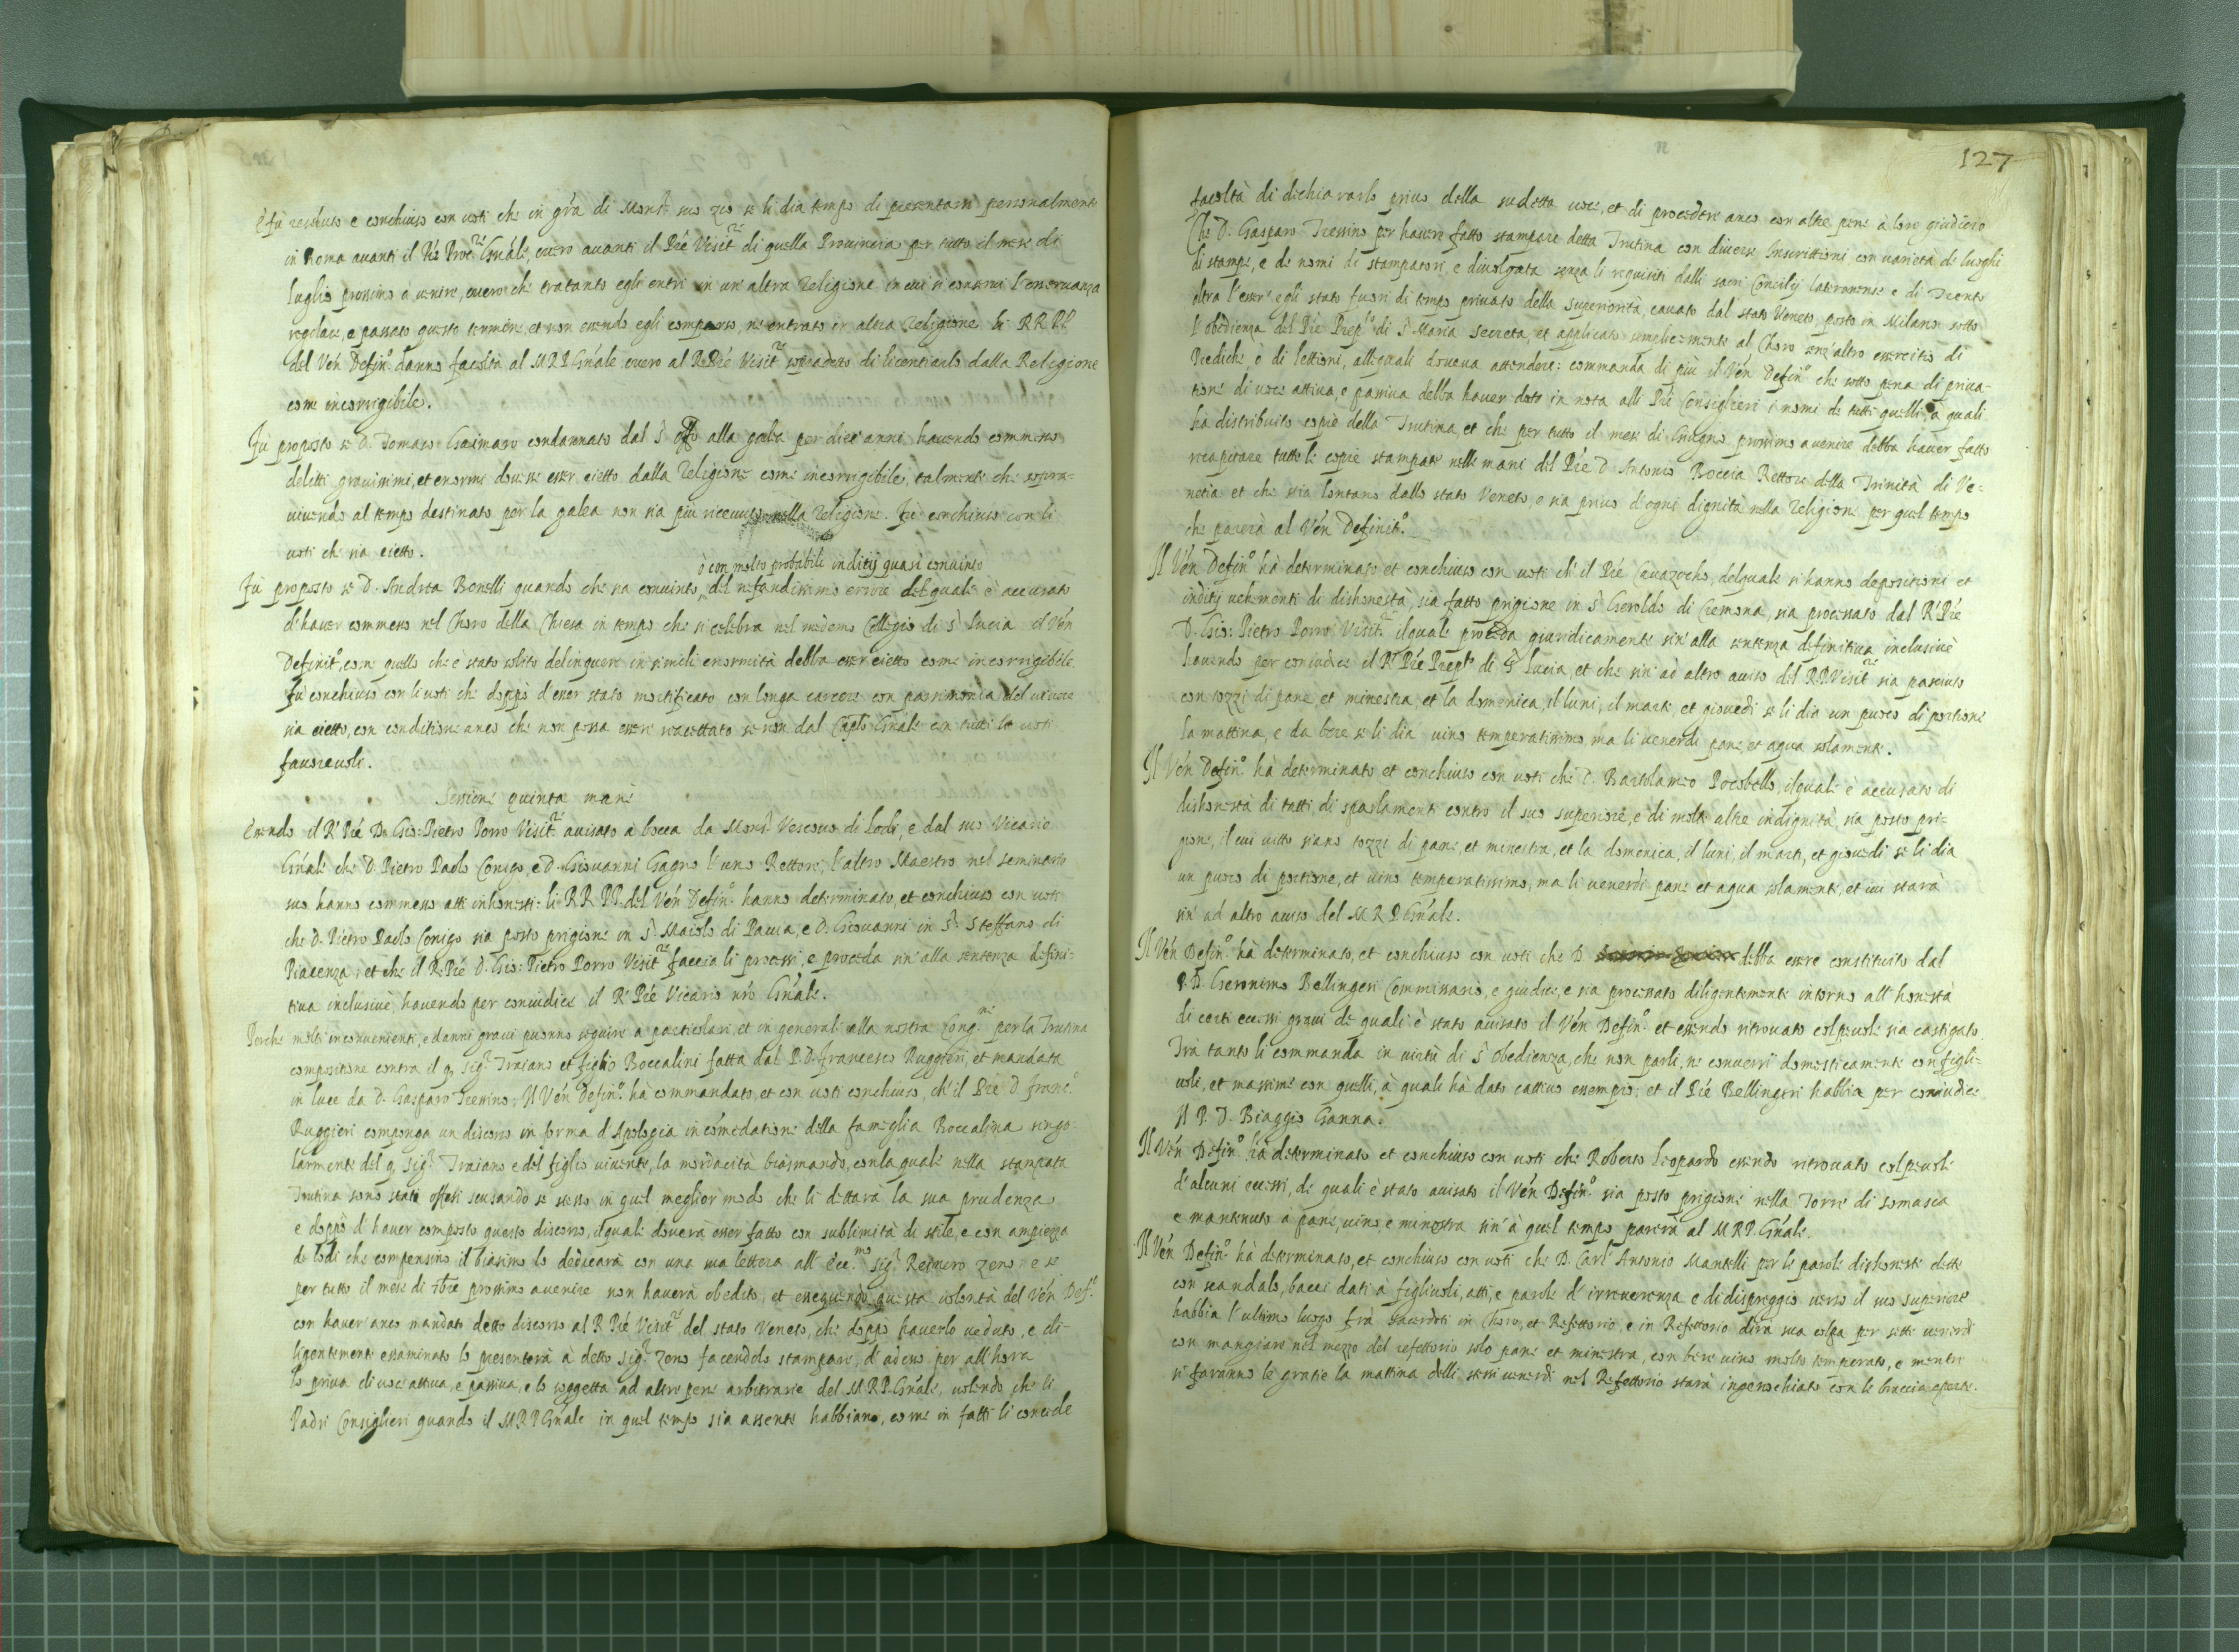 è fù resoluto e conchiuso con uoti che in gra di Monsr suo zio se li dia tempo di presentarsi personalmente
in Roma auanti il Pre Procre Gnale, ouero auanti il Pre Visitre di quella Prouincia per tutto il mese di
luglio prossimo à uenire, ouero che tratanto egli entri in un'altra Religione in cui si conserui l'osseruanza
regolare, e passato questo termine et non essendo egli comparso, ne entrato in altra Religione li RR PP
del Ven Defino danno facoltà al M R P Gnale ouero al R Pre Visitre sopradetto di licentiarlo dalla Religione
come incorrigibile.
Fù proposto se D. Tomaso Gaimaro condannato dal S. Offo alla galea per dieci anni hauendo commesso
delitti grauissimi, et enormi douesse esser eietto dalla Religione come incorrigibile, talmente che sopra-
uiuendo al tempo destinato per la galea non sia più riceuuto nella Religione. Fù conchiuso con li
uoti che sia eietto.
ò con molto probabili inditij quasi conuinto
Fù proposto se D. Andrea Bonelli quando che sia conuinto, del nefandissimo errore del quale è accusato
d'hauer commesso nel Choro della Chiesa in tempo che si celebra nel medemo Collegio di S. Lucia il Ven
Definito, come quello che è stato solito delinquere in simili enormità debba esser eietto come incorrigibile
fù conchiuso con li uoti che doppò d'esser stato mortificato con longa carcere con parsimonia del uiuere
sia eietto, con conditione anco che non possa essere riaccettato se non dal Caplo Gnale con tutti le uoti
fauoreuoli.
Sessione quinta mane
Essendo il R Pre D. Gio: Pietro Porro Visitre auisato à bocca da Monsr Vescouo di Lodi, e dal suo Vicario
Gnale che D. Pietro Paolo Conigo, e D. Giouanni Gagno l'uno Rettore, l'altro Maestro nel seminario
suo hanno commesso atti inhonesti: li RR PP. del Ven Defino hanno determinato, et conchiuso con uoti
che D. Pietro Paolo Conigo sia posto prigione in S. Maiolo di Pauia, e D. Giouanni in S. Steffano di
Piacenza; et che il R. Pre D. Gio: Pietro Porro Visitre faccia li processi, e proceda sin'alla sentenza defini-
tiua inclusiuè, hauendo per coniudice il R. Pre Vicario nro Gnale.
Perche molti inconuenienti, e danni graui puonno seguire à particolari, et in generale alla nostra Congne per la Trutina
compositione contra il q. Sigr Traiano et figlio Boccalini fatta dal P. D. Francesco Ruggieri, et mandata
in luce da D. Gasparo Tressino; Il Ven Defino hà commandato, et con uoti conchiuso, ch'il Pre D. Franco
Ruggieri componga un discorso in forma d'Apologia in comedatione della fameglia Boccalina singo-
larmente del q. Sigr Traiano e del figlio uiuente, la mordacità biasmando, con la quale nella stampata
Trutina sono stati offesi scusando se stesso in quel meglior modo che li dettarà la sua prudenza
e doppò d'hauer composto questo discorso, il quale douerà esser fatto con sublimità di stile, e con ampiezza
de lodi che compensino il biasimo lo dedicarà con una sua lettera all' eccmo Sigr Reiniero Zeno: e se
per tutto il mese di 7bre prossimo auenire non hauerà obedito, et essequendo questa uolontà del Ven Defo
con hauer anco mandato detto discorso al R Pre Visitre del stato Veneto, che doppò hauerlo ueduto, e di-
ligentemente essaminato lo presenterà à detto Sigr Zeno facendolo stampare, d'adesso per all'hora
lo priua di uoce attiua, e passiua, e lo soggetta ad altre pene arbitrarie del M.R.P. Gnale, uolendo che li
Padri Consiglieri quando il M R P Gnale in quel tempo sia assente habbiano, come in fatti li concede
127
facoltà di dichiararlo priuo della sudetta uoce, et di procedere anco con altre pene à loro giudicio
Che D. Gasparo Tressino per hauere fatto stampare detta Trutina con diuerse Inscrittioni, con uarietà de luoghi
di stampe, e de nomi de stampatori, e diuolgata senza li requisiti dalli sacri Concilij lateranense e di Trento
oltra l'esser' egli stato fuori di tempo priuato della superiorità, cauato dal stato Veneto, posto in Milano sotto
l'obedienza del Pre Preplo di S. Maria Secreta, et applicato semplicemente al Choro senz'altro essercitio di
Prediche, è di lettioni, alle quali doueua attendere: commanda di più il Ven Defino che sotto pena di priua-
tione di uoce attiua, e passiua debba hauer dato in nota alli Pri Consiglieri i nomi de tutti quelli à quali
hà distribuito copie della Trutina, et che per tutto il mese di Giugno prossimo auenire debba hauer fatto
recapitare tutte le copie stampate nelle mani del Pre D. Antonio Boccia Rettore della Trinità di Ve-
netia et che stia lontano dallo stato Veneto, e sia priuo d'ogni dignità nella Religione per quel tempo
che parerà al Ven Definito.
Il Ven Defino hà determinato et conchiuso con uoti ch'il Pre Cauazocho, del quale si hanno depositioni et
inditij uehementi di dishonestà, sia fatto prigione in S. Geroldo di Cremona, sia processato dal R. Pre
D. Gio: Pietro Porro Visitre il quale proceda giuridicamente sin'alla sentenza definitiua inclusiuè
hauendo per coniudice il R. Pre Preplo di S. Lucia, et che sin'ad altro auiso del R.P. Visitre sia pasciuto
con tozzi di pane et minestra, et la domenica, il luni, il marti, et giouedì se li dia un puoco di portione
la mattina, e da bere se li dia uino temperatissimo ma li uenerdi pane et aqua solamente.
Il Ven Defino hà determinato et conchiuso con uoti che D. Bartolameo Pocobello, il quale è accusato di
dishonestà di tatti, di sparlamenti contro il suo superiore, e di molte altre indignità, sia posto pri-
gione, il cui uitto siano tozzi di pane, et minestra, et la domenica, il luni, il marti, et giouedi se li dia
un puoco di portione, et uino temperatissimo, ma li uenerdì pane et aqua solamente, et iui starà
sin' ad altro auiso del M R P Gnale.
Il Ven Defino hà determinato, et conchiuso con uoti che D. debba essere constituito dal
P. D. Geronimo Bellingeri Commissario, e giudice, e sia processato diligentemente intorno all'honestà
di certi eccessi graui de quali è stato auisato il Ven Defino et essendo ritrouato colpeuole sia castigato
Trà tanto li commanda in uirtù di S. Obedienza, che non parli, ne conuersi domesticamente con figli-
uoli, et massime con quelli, à quali hà dato cattiuo essempio; et il Pre Bellingeri habbia per coniudice
Il P. D. Biaggio Ganna.
Il Ven Defino hà determinato et conchiuso con uoti che Roberto Leopardo essendo ritrouato colpeuole
d'alcuni eccessi, de quali è stato auisato il Ven Defino sia posto prigione nella Torre di Somasca
e mantenuto à pane, uino, e minestra sin'à quel tempo parerà al M R P. Gnale.
Il Ven Defino hà determinato, et conchiuso con uoti che D. Carl' Antonio Mantelli per le parole dishoneste dette
con scandalo, bacci dati à figliuoli, atti, e parole d'irreuerenza e di dispreggio uerso il suo superiore
habbia l'ultimo luogo frà sacerdoti in Choro, et Refettorio, e in Refettorio dirà sua colpa per sette uenerdì
con mangiare nel mezzo del refettorio solo pane et minestra, con bere uino molto temperato, e mentre
si faranno le gratie la mattina delli stessi uenerdì nel Refettorio starà ingenochiato con le braccia aperte.